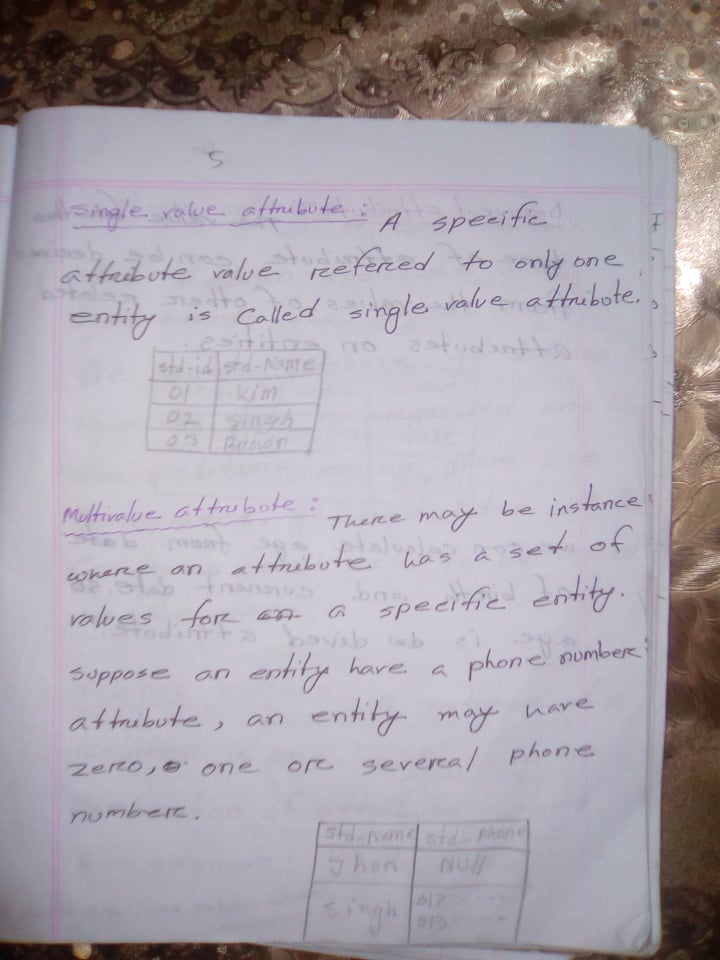 5
Single value attribute : A specific
attribute value refered to only one
entity is called single value attribute.
std-id std-Name
01 Kim
02 Singh
03 Brown
Multivalue attribute : There may be instance
where an attribute has a set of
values for a specific entity.
suppose an entity have a phone number
attribute, an entity may have
zero, one or several phone
number.
Std-Name std-Phone
Jhon NUll
Singh 017-----
019-----